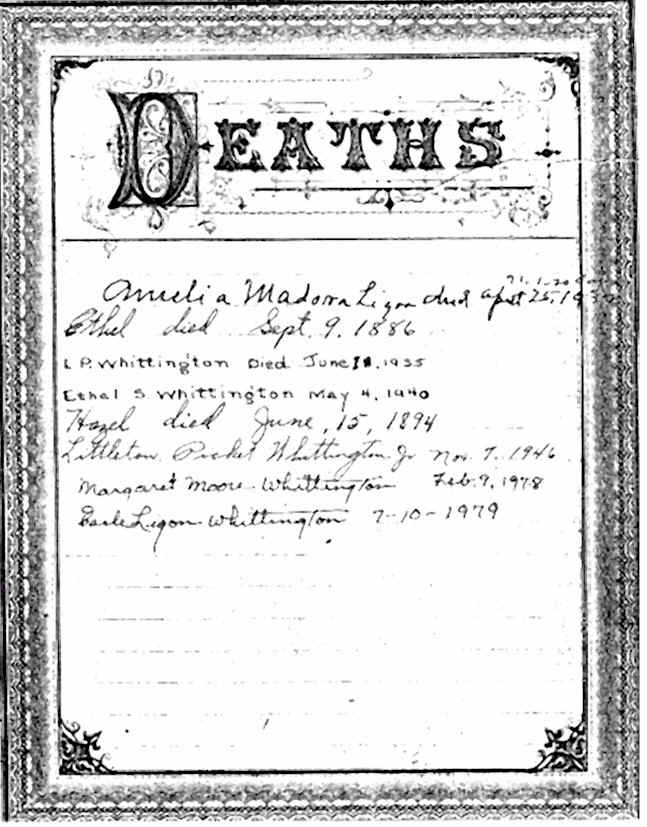 DEATHS
Amelia Madora Ligon died Sept 25, 19
Ethel died Sept. 9. 1886
L P. Whittington Died June , 1935
Ethal S. Whittington May 4, 1940
Hazel died June, 15, 1894
Littleton Picket Whittington Jr Nov. 7. 1946
Margaret Moore Whittington Feb. 9, 1978
Earle Ligon Whittington 7-10-1979